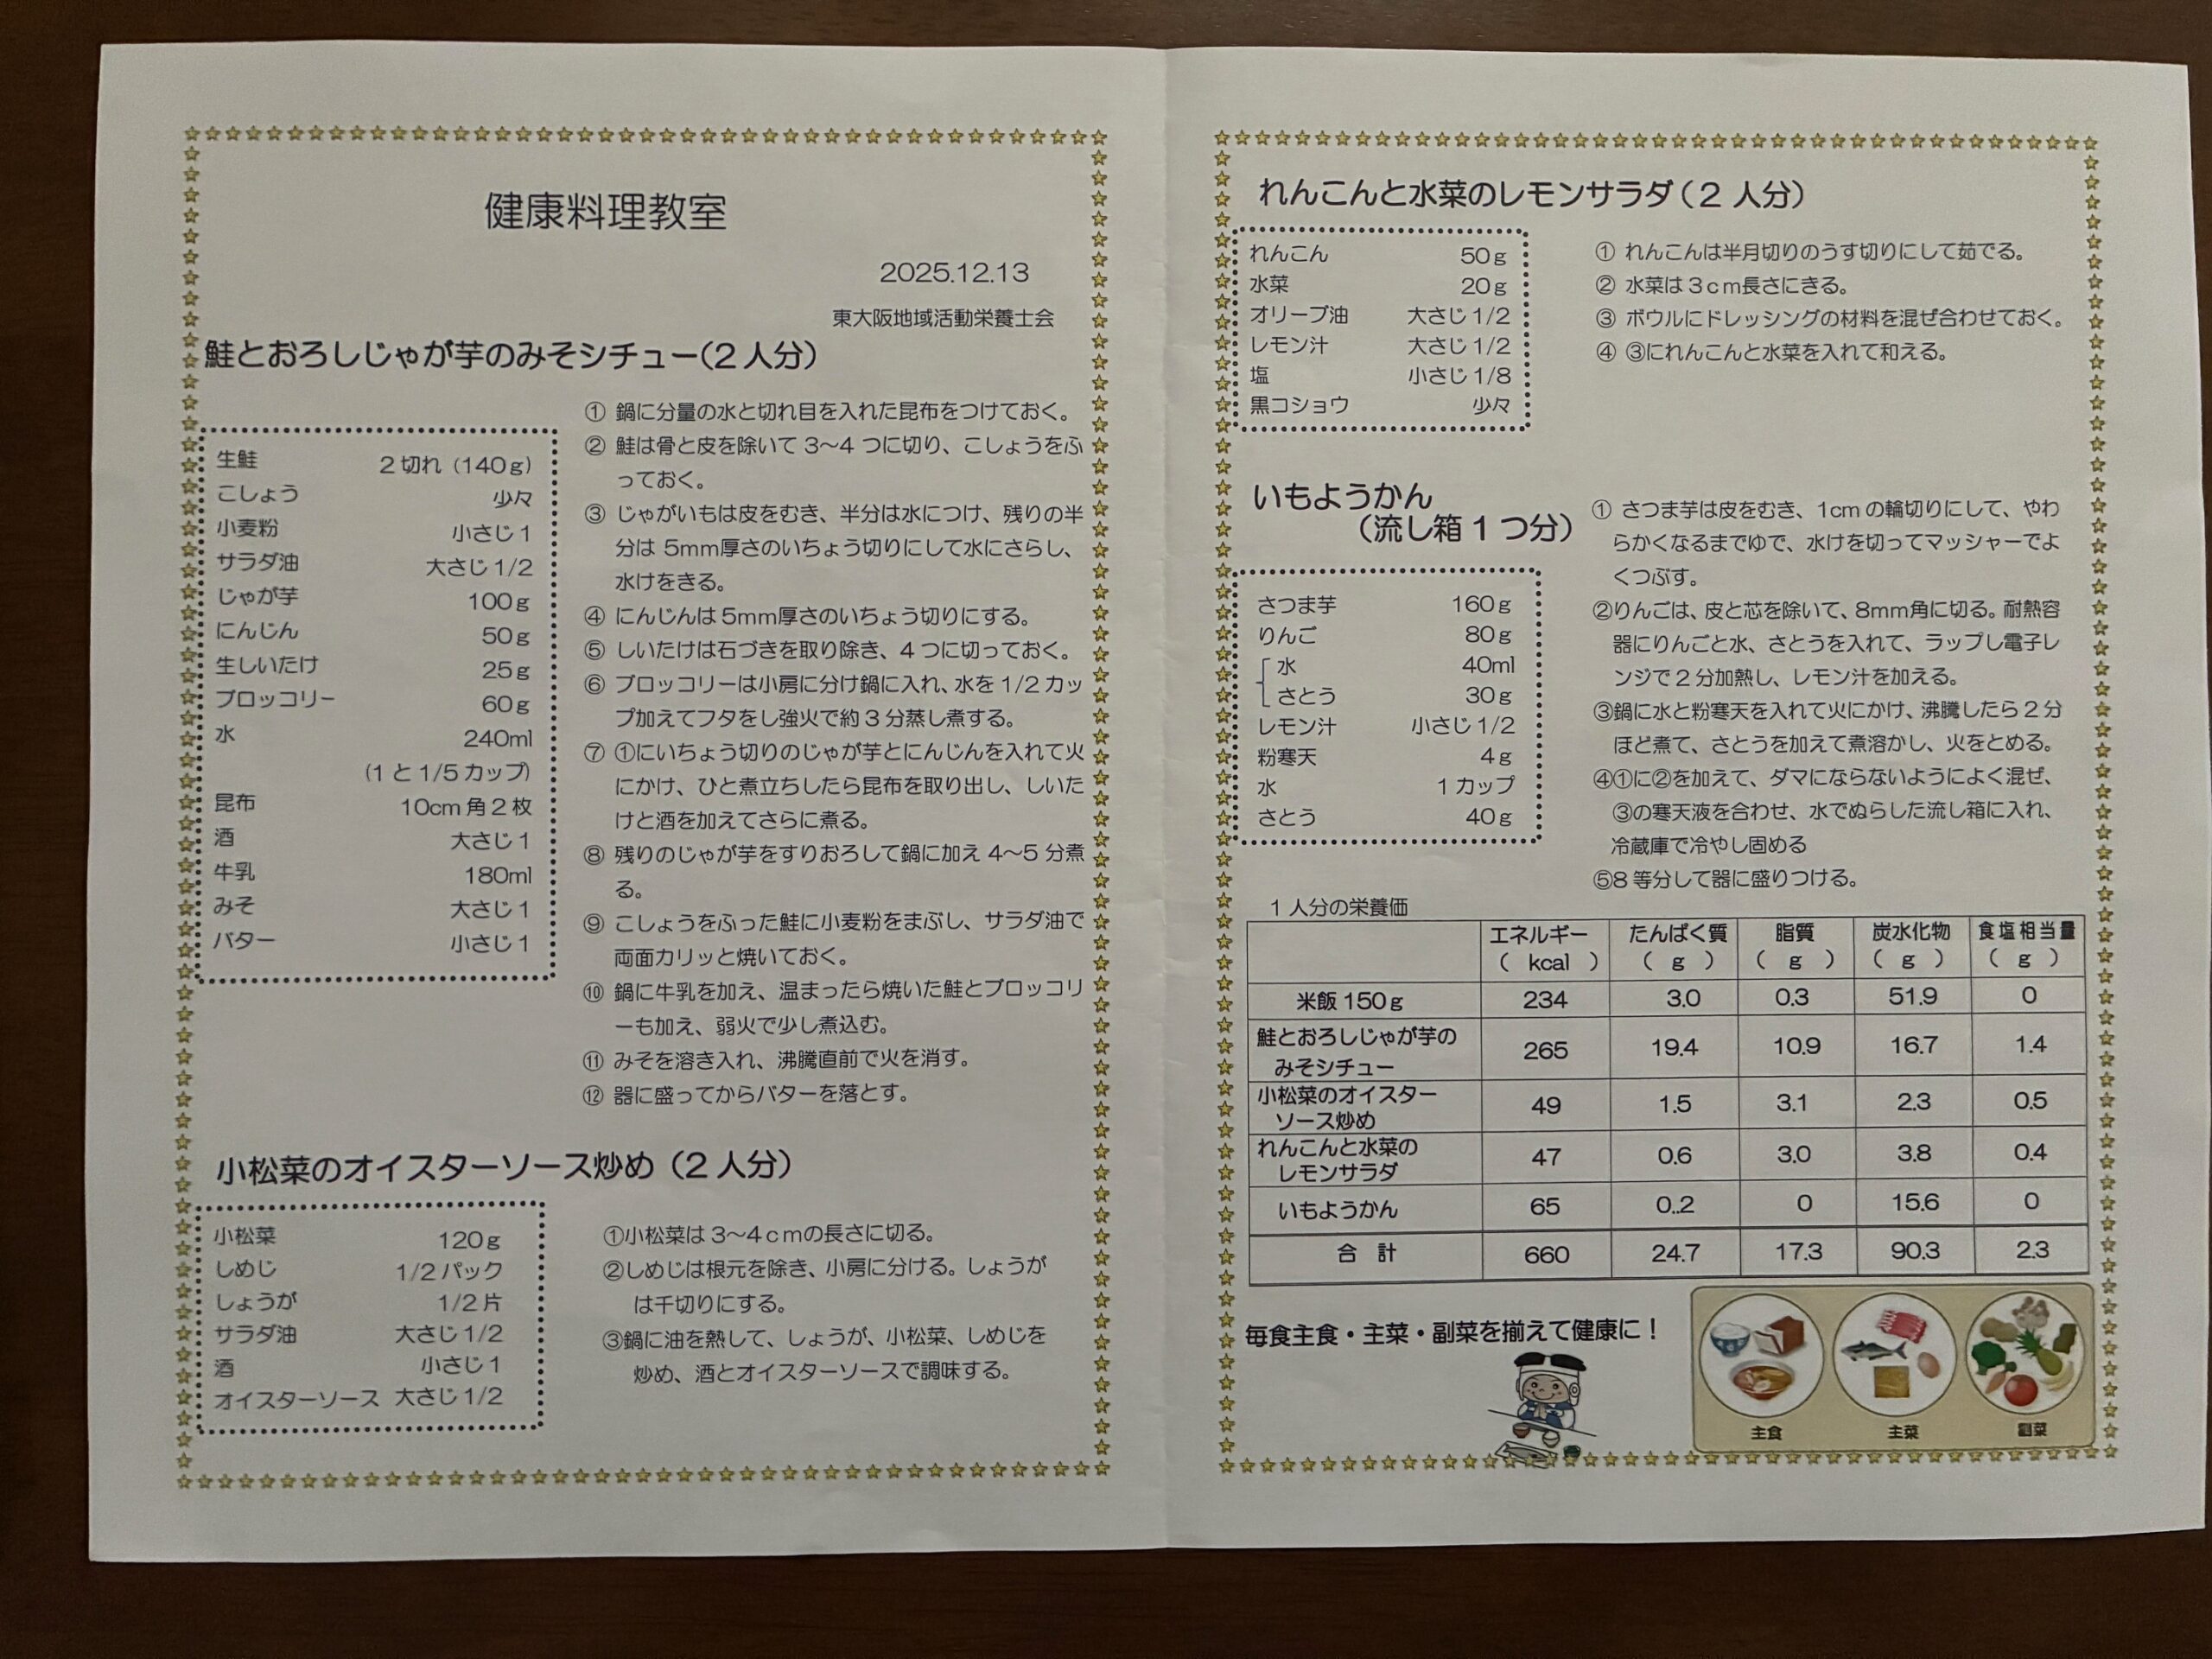 健康料理教室
2025.12.13
東大阪地域活動栄養士会
鮭とおろしじゃが芋のみそシチュー(2人分)
生鮭 2切れ(140g)
こしょう 少々
小麦粉 小さじ1
サラダ油 大さじ1/2
じゃが芋 100g
にんじん 50g
生しいたけ 25g
ブロッコリー 60g
水 240ml
(1と1/5カップ)
昆布 10cm角2枚
酒 大さじ1
牛乳 180ml
みそ 大さじ1
バター 小さじ1
① 鍋に分量の水と切れ目を入れた昆布をつけておく。
② 鮭は骨と皮を除いて3〜4つに切り、こしょうをふ
っておく。
③ じゃがいもは皮をむき、半分は水につけ、残りの半
分は5mm厚さのいちょう切りにして水にさらし、
水けをきる。
④ にんじんは5mm厚さのいちょう切りにする。
⑤ しいたけは石づきを取り除き、4つに切っておく。
⑥ ブロッコリーは小房に分け鍋に入れ、水を1/2カッ
プ加えてフタをし強火で約3分蒸し煮する。
⑦ ①にいちょう切りのじゃが芋とにんじんを入れて火
にかけ、ひと煮立ちしたら昆布を取り出し、しいた
けと酒を加えてさらに煮る。
⑧ 残りのじゃが芋をすりおろして鍋に加え4〜5分煮
る。
⑨ こしょうをふった鮭に小麦粉をまぶし、サラダ油で
両面カリッと焼いておく。
⑩ 鍋に牛乳を加え、温まったら焼いた鮭とブロッコリ
ーも加え、弱火で少し煮込む。
⑪ みそを溶き入れ、沸騰直前で火を消す。
⑫ 器に盛ってからバターを落とす。
小松菜のオイスターソース炒め(2人分)
小松菜 120g
しめじ 1/2パック
しょうが 1/2片
サラダ油 大さじ1/2
酒 小さじ1
オイスターソース 大さじ1/2
①小松菜は3〜4cmの長さに切る。
②しめじは根元を除き、小房に分ける。しょうが
は千切りにする。
③鍋に油を熱して、しょうが、小松菜、しめじを
炒め、酒とオイスターソースで調味する。
れんこんと水菜のレモンサラダ(2人分)
れんこん 50g
水菜 20g
オリーブ油 大さじ1/2
レモン汁 大さじ1/2
塩 小さじ1/8
黒コショウ 少々
① れんこんは半月切りのうす切りにして茹でる。
② 水菜は3cm長さにきる。
③ ボウルにドレッシングの材料を混ぜ合わせておく。
④ ③にれんこんと水菜を入れて和える。
いもようかん
(流し箱1つ分)
さつま芋 160g
りんご 80g
水 40ml
さとう 30g
レモン汁 小さじ1/2
粉寒天 4g
水 1カップ
さとう 40g
① さつま芋は皮をむき、1cmの輪切りにして、やわ
らかくなるまでゆで、水けを切ってマッシャーでよ
くつぶす。
②りんごは、皮と芯を除いて、8mm角に切る。耐熱容
器にりんごと水、さとうを入れて、ラップし電子レ
ンジで2分加熱し、レモン汁を加える。
③鍋に水と粉寒天を入れて火にかけ、沸騰したら2分
ほど煮て、さとうを加えて煮溶かし、火をとめる。
④①に②を加えて、ダマにならないようによく混ぜ、
③の寒天液を合わせ、水でぬらした流し箱に入れ、
冷蔵庫で冷やし固める
⑤8等分して器に盛りつける。
1人分の栄養価
エネルギー たんぱく質 脂質 炭水化物 食塩相当量
( kcal ) ( g ) ( g ) ( g ) ( g )
米飯150g 234 3.0 0.3 51.9 0
鮭とおろしじゃが芋の
みそシチュー 265 19.4 10.9 16.7 1.4
小松菜のオイスター
ソース炒め 49 1.5 3.1 2.3 0.5
れんこんと水菜の
レモンサラダ 47 0.6 3.0 3.8 0.4
いもようかん 65 0..2 0 15.6 0
合 計 660 24.7 17.3 90.3 2.3
毎食主食・主菜・副菜を揃えて健康に!
主食 主菜 副菜